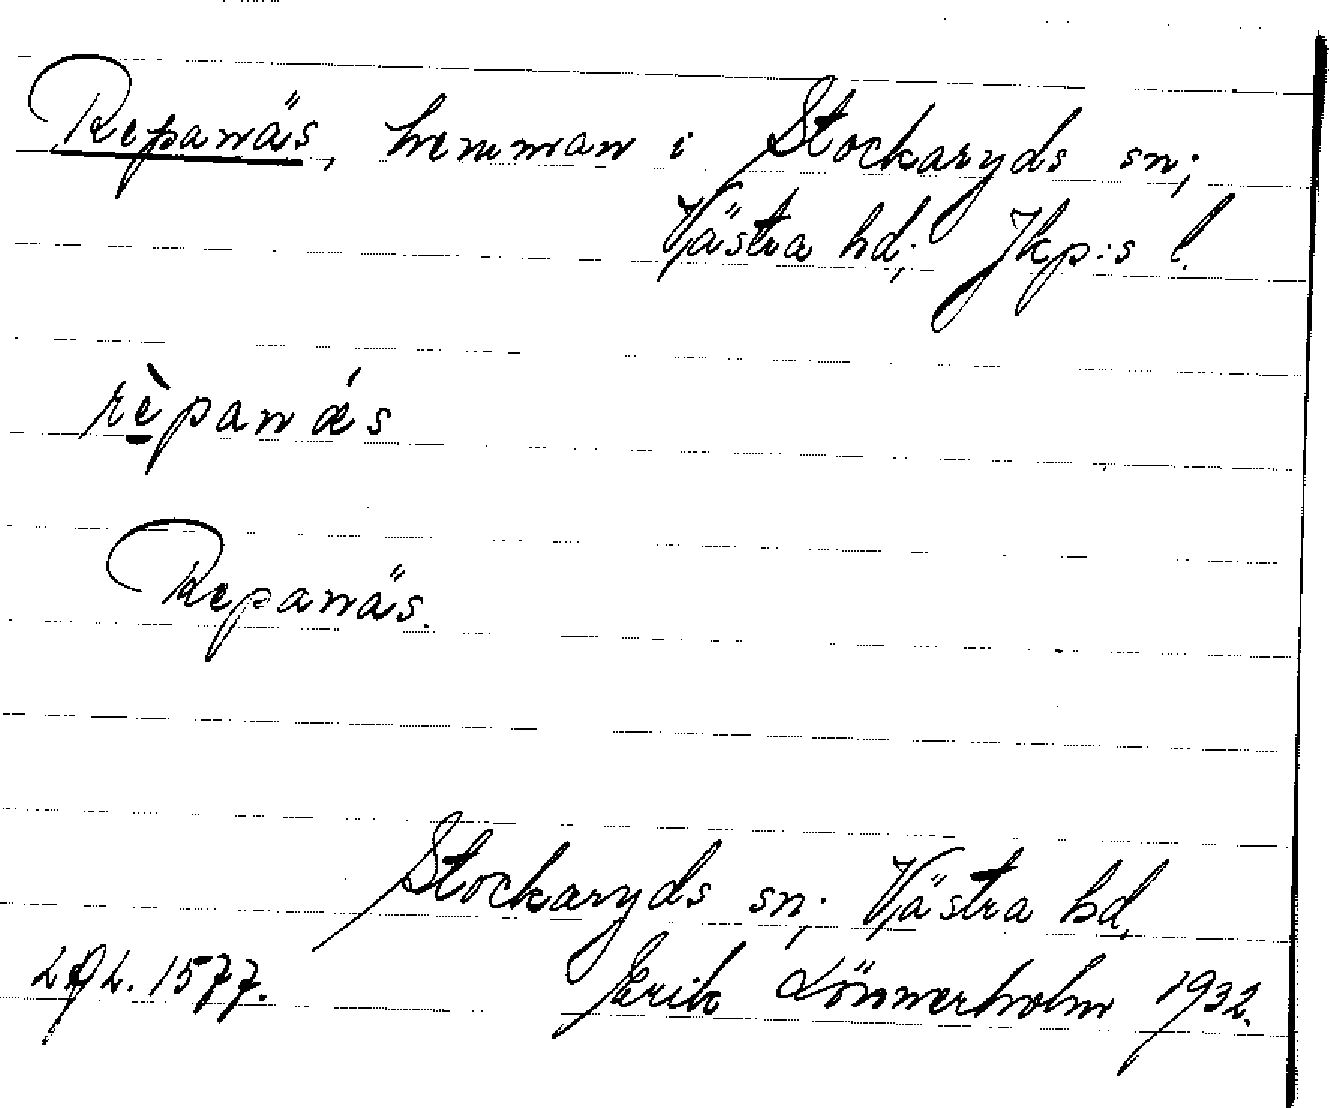 Repanäs, hemman i Stockaryds sn;
Västra hd; Jkp:s l.
rè̱panǽs
Repanäs.
Stockaryds sn; Västra hd,
1577. Erik Lönnerholm 1932.